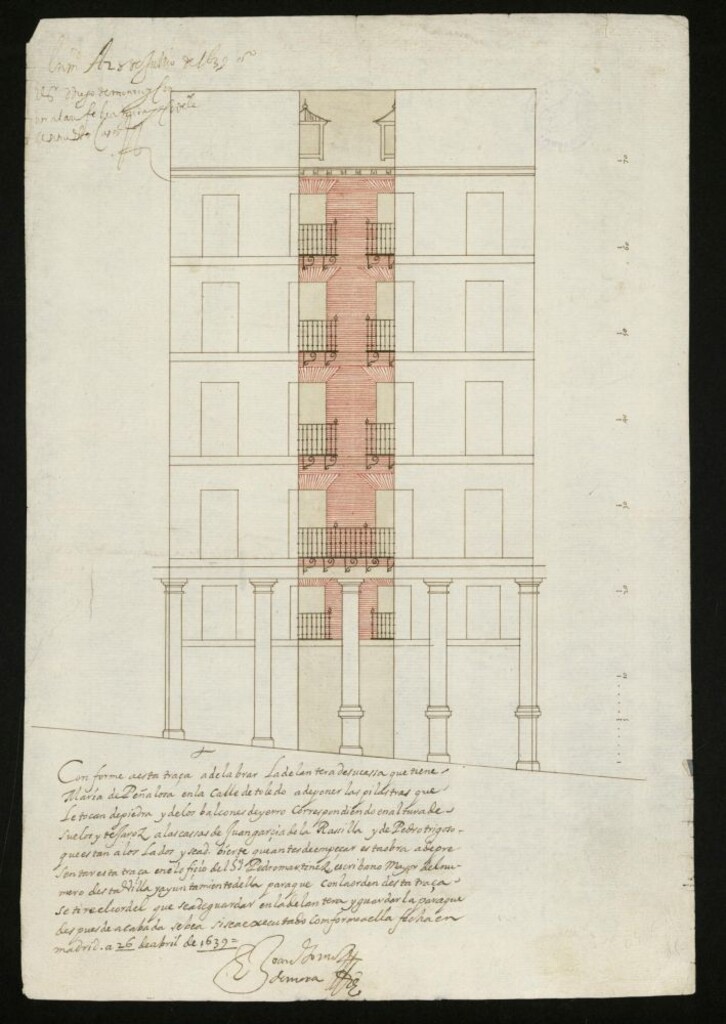 de Julio de 1639
Con forme aesta traça a de labrar La delantera de su cassa que tiene
Maria de Peñalosa en la Calle de toledo a de poner las pilastras que
Le tocan de piedra y de los balcones de yerro Correspondiendo en altura de
Suelos y tejaroz a las cassas de Juan garcia de la Rassilla y de Pedro trigoso
que estan a los Lados y se ad bierte que antes de empeçar esta obra a de pre
sentar esta traça en el ofiçio del Sr Pedro martinez escribano Mayor del nu
mero desta Villa y ayuntamiento della para que Con la orden desta traça
se tire el cordel que se a de guardar en la delantera y guardar la para que
despues de acabada se bea si se a executado Conforme a ella fecha en
madrid. a 26 de abril de 1639=
Joan Gomez
de mora